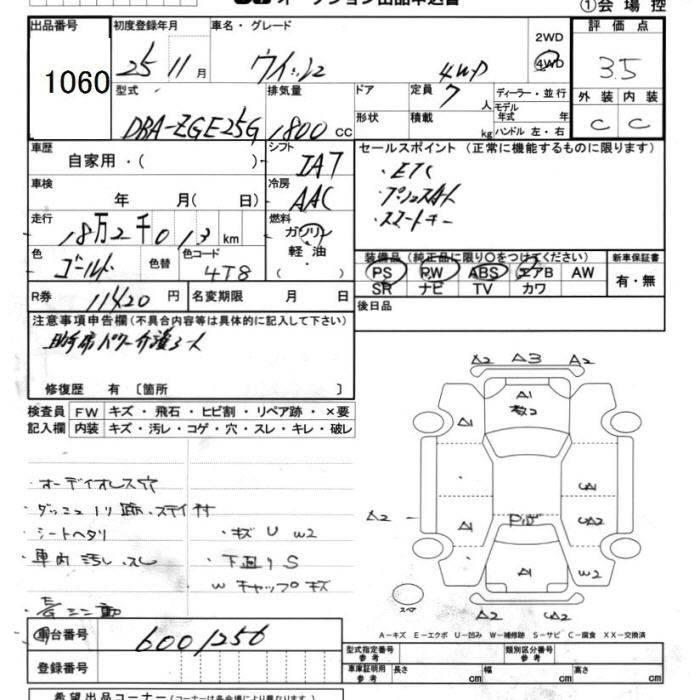 ①会場控
出品番号 初度登録年月 車名・グレード 2WD 4WD 評価点
1060 25 11月 ウィッシュ 4WD 3.5
型式 排気量 ドア 定員 7人 ディーラー・並行 外装 内装
DBA-ZGE25G 1800cc 形状 積載 kg モデル年式 年 ハンドル 左・右 C C
車歴 自家用・( ) シフト IA7 セールスポイント (正常に機能するものに限ります)
車検 年 月( 日) 冷房 AAC ・ETC
・プッシュスタート
走行 18万2千013km 燃料 ガソリン ・スマートキー
色 ゴールド 色替 色コード 4T8 軽油 ( )
装備品(純正品に限り○をつけてください) 新車保証書
PS PW ABS エアB AW 有・無
SR ナビ TV カワ
R券 11420円 名変期限 月 日 後日品
注意事項申告欄(不具合内容等は具体的に記入して下さい)
助手席パワー介護シート
修復歴 有 〔箇所 〕
検査員 FW キズ・飛石・ヒビ割・リペア跡・×要
記入欄 内装 キズ・汚レ・コゲ・穴・スレ・キレ・破レ
A2 A3 A2
A1
A1
・オーディオレス穴
・ダッシュ ノリ跡、ステイ付
・シートヘタリ ・キズ U W2
・車内 汚レ、スレ ・下廻り S
W キャップ キズ
UA1
A2 A1 UA2
A1 W2
スペア A2 A2
A-キズ E-エクボ U-凹み W-補修跡 S-サビ C-腐食 XX-交換済
車台番号 6001256
登録番号
型式指定番号 参考 類別区分番号 参考
車庫証明用 参考 長さ cm 幅 cm 高さ cm
希望出品コーナー(コーナーは各会場により異なります)